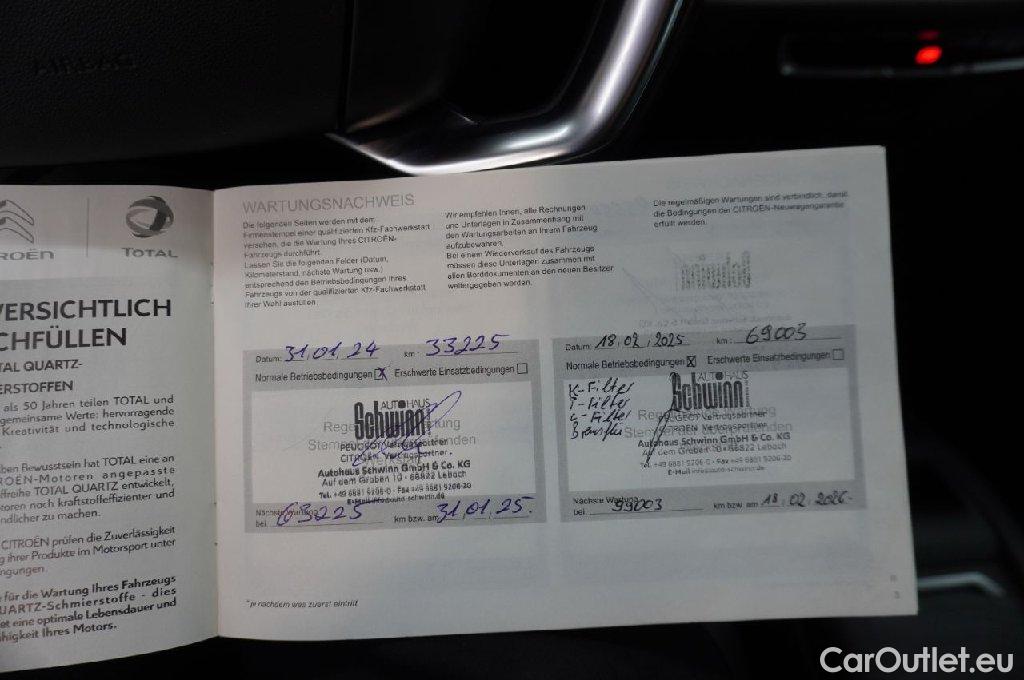 AIRBAG
TOTAL
ERSICHTLICH
CHFÜLLEN
TAL QUARTZ-
ERSTOFFEN
als 50 Jahren teilen TOTAL und
gemeinsame Werte: hervorragende
Kreativität und technologische
ben Bewusstsein hat TOTAL eine an
ROËN-Motoren angepasste
ffreihe TOTAL QUARTZ entwickelt,
otoren noch kraftstoffeffizienter und
ndlicher zu machen.
CITROËN prüfen die Zuverlässigkeit
g ihrer Produkte im Motorsport unter
ngungen.
für die Wartung Ihres Fahrzeugs
UARTZ-Schmierstoffe - dies
tet eine optimale Lebensdauer und
ähigkeit Ihres Motors.
WARTUNGSNACHWEIS
Die folgenden Seiten werden mit dem
Firmenstempel einer qualifizierten Kfz-Fachwerkstatt
versehen, die die Wartung Ihres CITROËN-
Fahrzeugs durchführt.
Lassen Sie die folgenden Felder (Datum,
Kilometerstand, nächste Wartung usw.)
entsprechend den Betriebsbedingungen Ihres
Fahrzeugs von der qualifizierten Kfz-Fachwerkstatt
Ihrer Wahl ausfüllen.
Wir empfehlen Ihnen, alle Rechnungen
und Unterlagen in Zusammenhang mit
den Wartungsarbeiten an Ihrem Fahrzeug
aufzubewahren.
Bei einem Wiederverkauf des Fahrzeugs
müssen diese Unterlagen zusammen mit
allen Borddokumenten an den neuen Besitzer
weitergegeben werden.
Die regelmäßigen Wartungen sind verbindlich, damit
die Bedingungen der CITROËN-Neuwagengarantie
erfüllt werden.
Datum: 31.01.24 km: 33225
Normale Betriebsbedingungen X Erschwerte Einsatzbedingungen
AUTOHAUS
Schwinn
PEUGEOT Vertragspartner
CITROËN Vertragspartner
Autohaus Schwinn GmbH & Co. KG
Auf dem Graben 10 · 66822 Lebach
Tel. +49 6881 5206-0 · Fax +49 6881 5206-20
E-Mail info@auto-schwinn.de
Nächste Wartung
bei 63225 km bzw. am 31.01.25.
Datum: 18.02.2025 km: 69003
Normale Betriebsbedingungen X Erschwerte Einsatzbedingungen
K-Filter
L-Filter
AUTOHAUS
Schwinn
PEUGEOT Vertragspartner
CITROËN Vertragspartner
Autohaus Schwinn GmbH & Co. KG
Auf dem Graben 10 · 66822 Lebach
Tel. +49 6881 5206-0 · Fax +49 6881 5206-20
E-Mail info@auto-schwinn.de
Nächste Wartung
bei 99003 km bzw. am 18.02.2026.
*je nachdem was zuerst eintritt
3
CarOutlet.eu